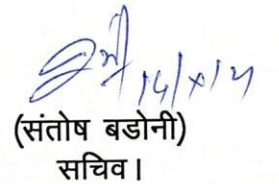 14/x/21
(संतोष बडोनी)
सचिव।